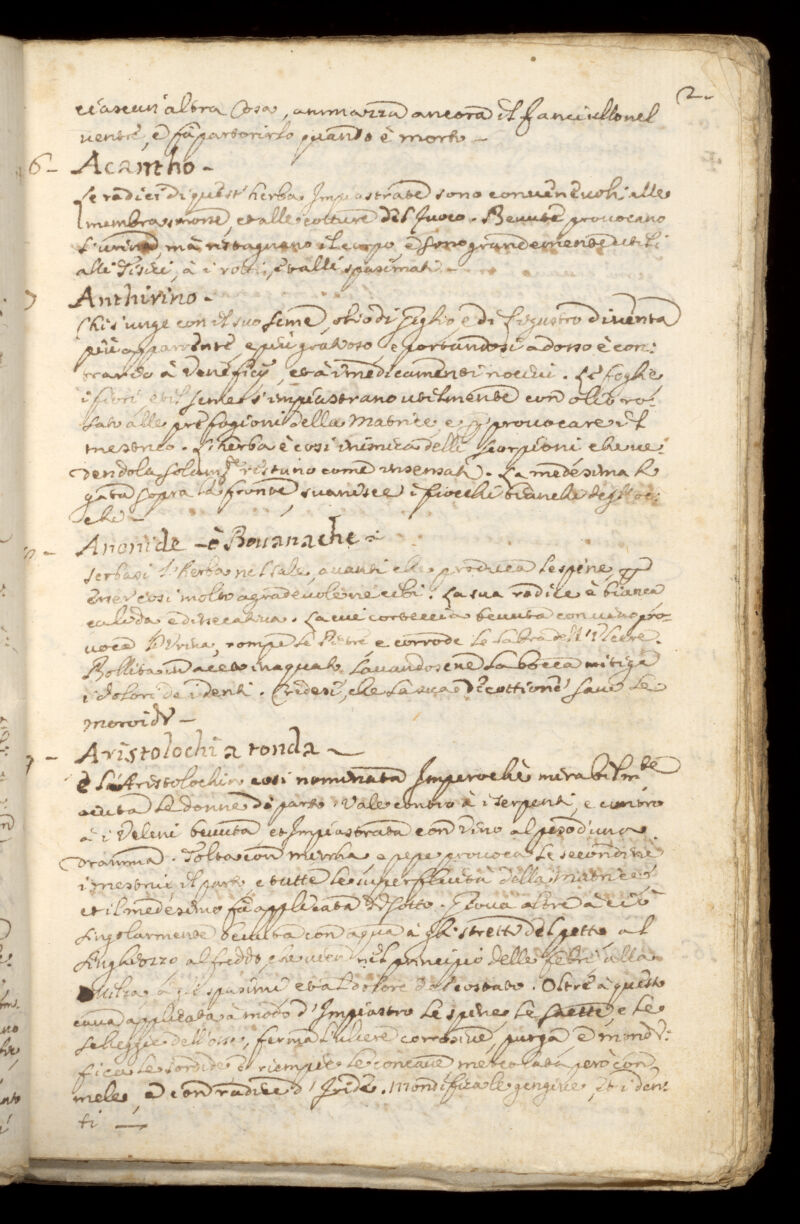 2.
ciascun'altra Cosa, ammazza ancora il fanciullo nel
ventre, e fa partorirlo quando è morto —
6 — Acantho —
Le radici di quest'herba Impiastrate sono convenevoli alle
membra smosse, et alle cotture del fuoco. Bevute provocano
l'urina, ma ristagnano il corpo, e sono grandemente utili
alli Tisici, à i rotti, et alli spasimati —
7 Anthirino —
Chi s'unge con il suo seme, olio di Giglio e di Ligustro diventa
più apparente e più gratioso, e portandosi adosso è con:
trario à Veneficij, et à i medicamenti nocivi. Le foglie
i fiori et il seme s'impiastrano utilmente con olio ro:
sato alle prefogioni della Matrice, e p provocare il
mestruo. L'herba è così inimica delli Scorpioni che ve:
dendola solam.te restano come insensati. La medesima le
gata sopra la fronte, svanisce i fiocchi bianchi degl'oc:
chi —
8 — Anonide — ò Bouanache —
Serbasi l'herba nel sale, avanti che produca le spine p
esser così molto agradevole ne cibi. La sua radice è bianca
calida e disecativa. La cui corteccia bevuta con vino pro:
voca l'Urina, rompe le Pietre, e corrode le labra dell'Ulcere.
Bollita in aceto inaquato lavandosene la bocca mitiga
i dolori de i denti. Credesi, che la sua Decottione sani le
moroide —
9 — Aristolochia tonda —
È la Aristolochia così nominata Imperochè mirabilm.te
aiuta le donne di parto. Vale contro à i serpenti, e contro
à i Veleni bevuta et Impiastrata con Vino al peso d'una
Dramma. Tolta con mirrha e pepe provoca le secondine
i mestrui il parto e tutte le superfluità della Matrice
et il medesimo fa applicata di sotto. Giova oltre à ciò
singolarmente bevuta con aqua à gli stretti del petto al
singhiozzo al freddo, che vien nel principio delle febri alla
milza à gli spasimi et al dolore del costato. Oltre à questo
cava applicata à modo d'Impiastro le spine le saette, e le
scheggie dell'osse, ferma l'ulcere corrosive, purga e mondi:
fica le sordide e riempie le concave mescolata però con
mele, e con radice d'Iride. Mondifica le gengive, et i den:
ti —